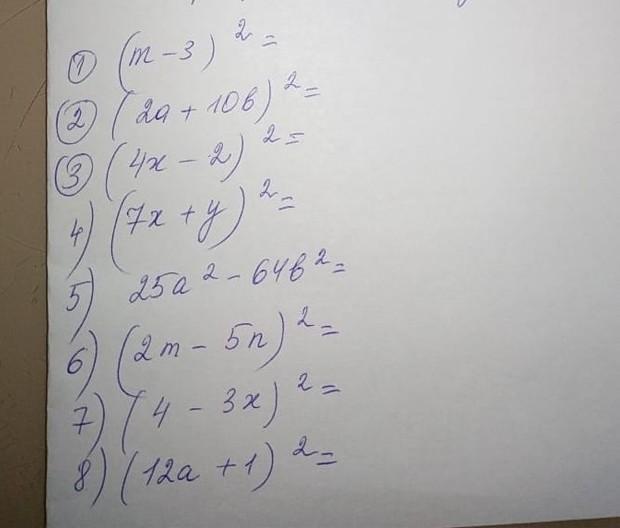 ① (m - 3)² =
② (2a + 10b)² =
③ (4x - 2)² =
4) (7x + y)² =
5) 25a² - 64b² =
6) (2m - 5n)² =
7) (4 - 3x)² =
8) (12a + 1)² =